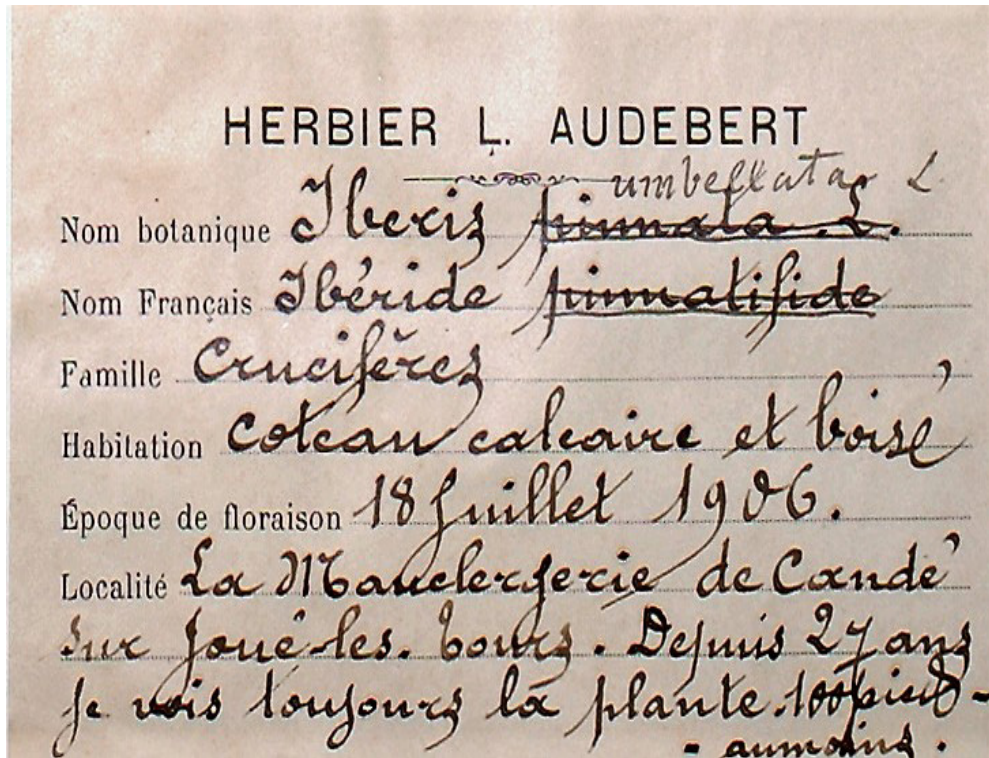 HERBIER L. AUDEBERT
umbellata L.
Nom botanique Iberis pinnata. L.
Nom Français Ibéride pinnatifide
Famille Crucifères
Habitation coteau calcaire et boisé
Époque de floraison 18 Juillet 1906.
Localité La Mauclergerie de Candé
sur Joué-les-Tours. Depuis 27 ans
je vois toujours la plante. 100 pieds -
- au moins.